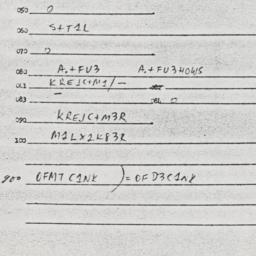 050 O
060 S+T1L
070 O
080 A.+FU3 A.+FU3HOWS
081 KREJC+M1/-
083 -
090 KREJC+M3R
100 M1LX1K83R
900 OFMT C1NK ) = OF D3C1NK